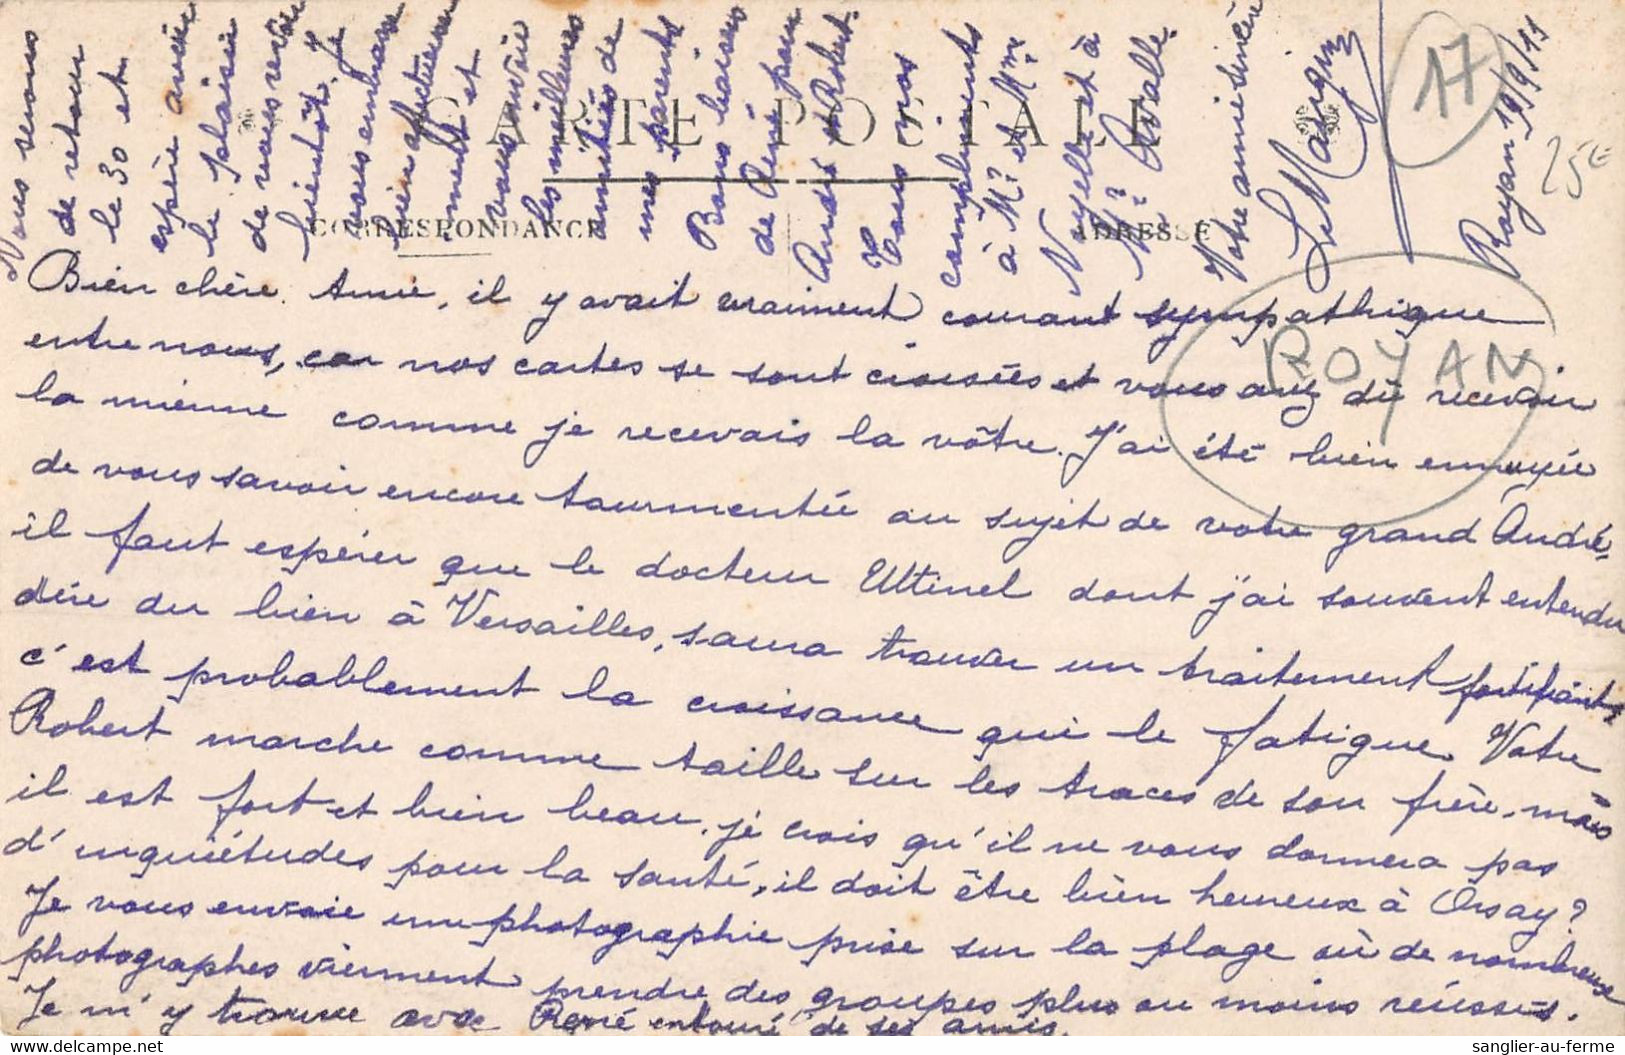 CARTE POSTALE
CORRESPONDANCE
ADRESSE
17
25€
ROYAN
Royan 19/9/11
Bien chère Amie, il y avait vraiment courant sympathique
entre nous, car nos cartes se sont croisées et vous avez dû recevoir
la mienne comme je recevais la vôtre. J'ai été bien ennuyée
de vous savoir encore tourmentée au sujet de votre grand André,
il faut espérer que le docteur Ultinel dont j'ai souvent entendu
dire du bien à Versailles, saura trouver un traitement fortifiant,
c'est probablement la croissance qui le fatigue. Votre
Robert marche comme taille sur les traces de son frère, mais
il est fort et bien beau, je crois qu'il ne vous donnera pas
d'inquiétudes pour la santé, il doit être bien heureux à Orsay?
Je vous envoie une photographie prise sur la plage où de nombreux
photographes viennent prendre des groupes plus ou moins réussis.
Je m'y trouve avec René entouré de ses amis.
Nous serons
de retour
le 30 et
espère avoir
le plaisir
de vous revoir
bientôt. Je
vous embrasse
bien affectueuse
ment et
vous envoie
les meilleures
amitiés de
mes parents
Bons baisers
de René pour
André et Robert.
Tous nos
compliments
à Mr et Mme
Noyelle et à
Mr Avalle.
Votre amie sincère
sanglier-au-ferme